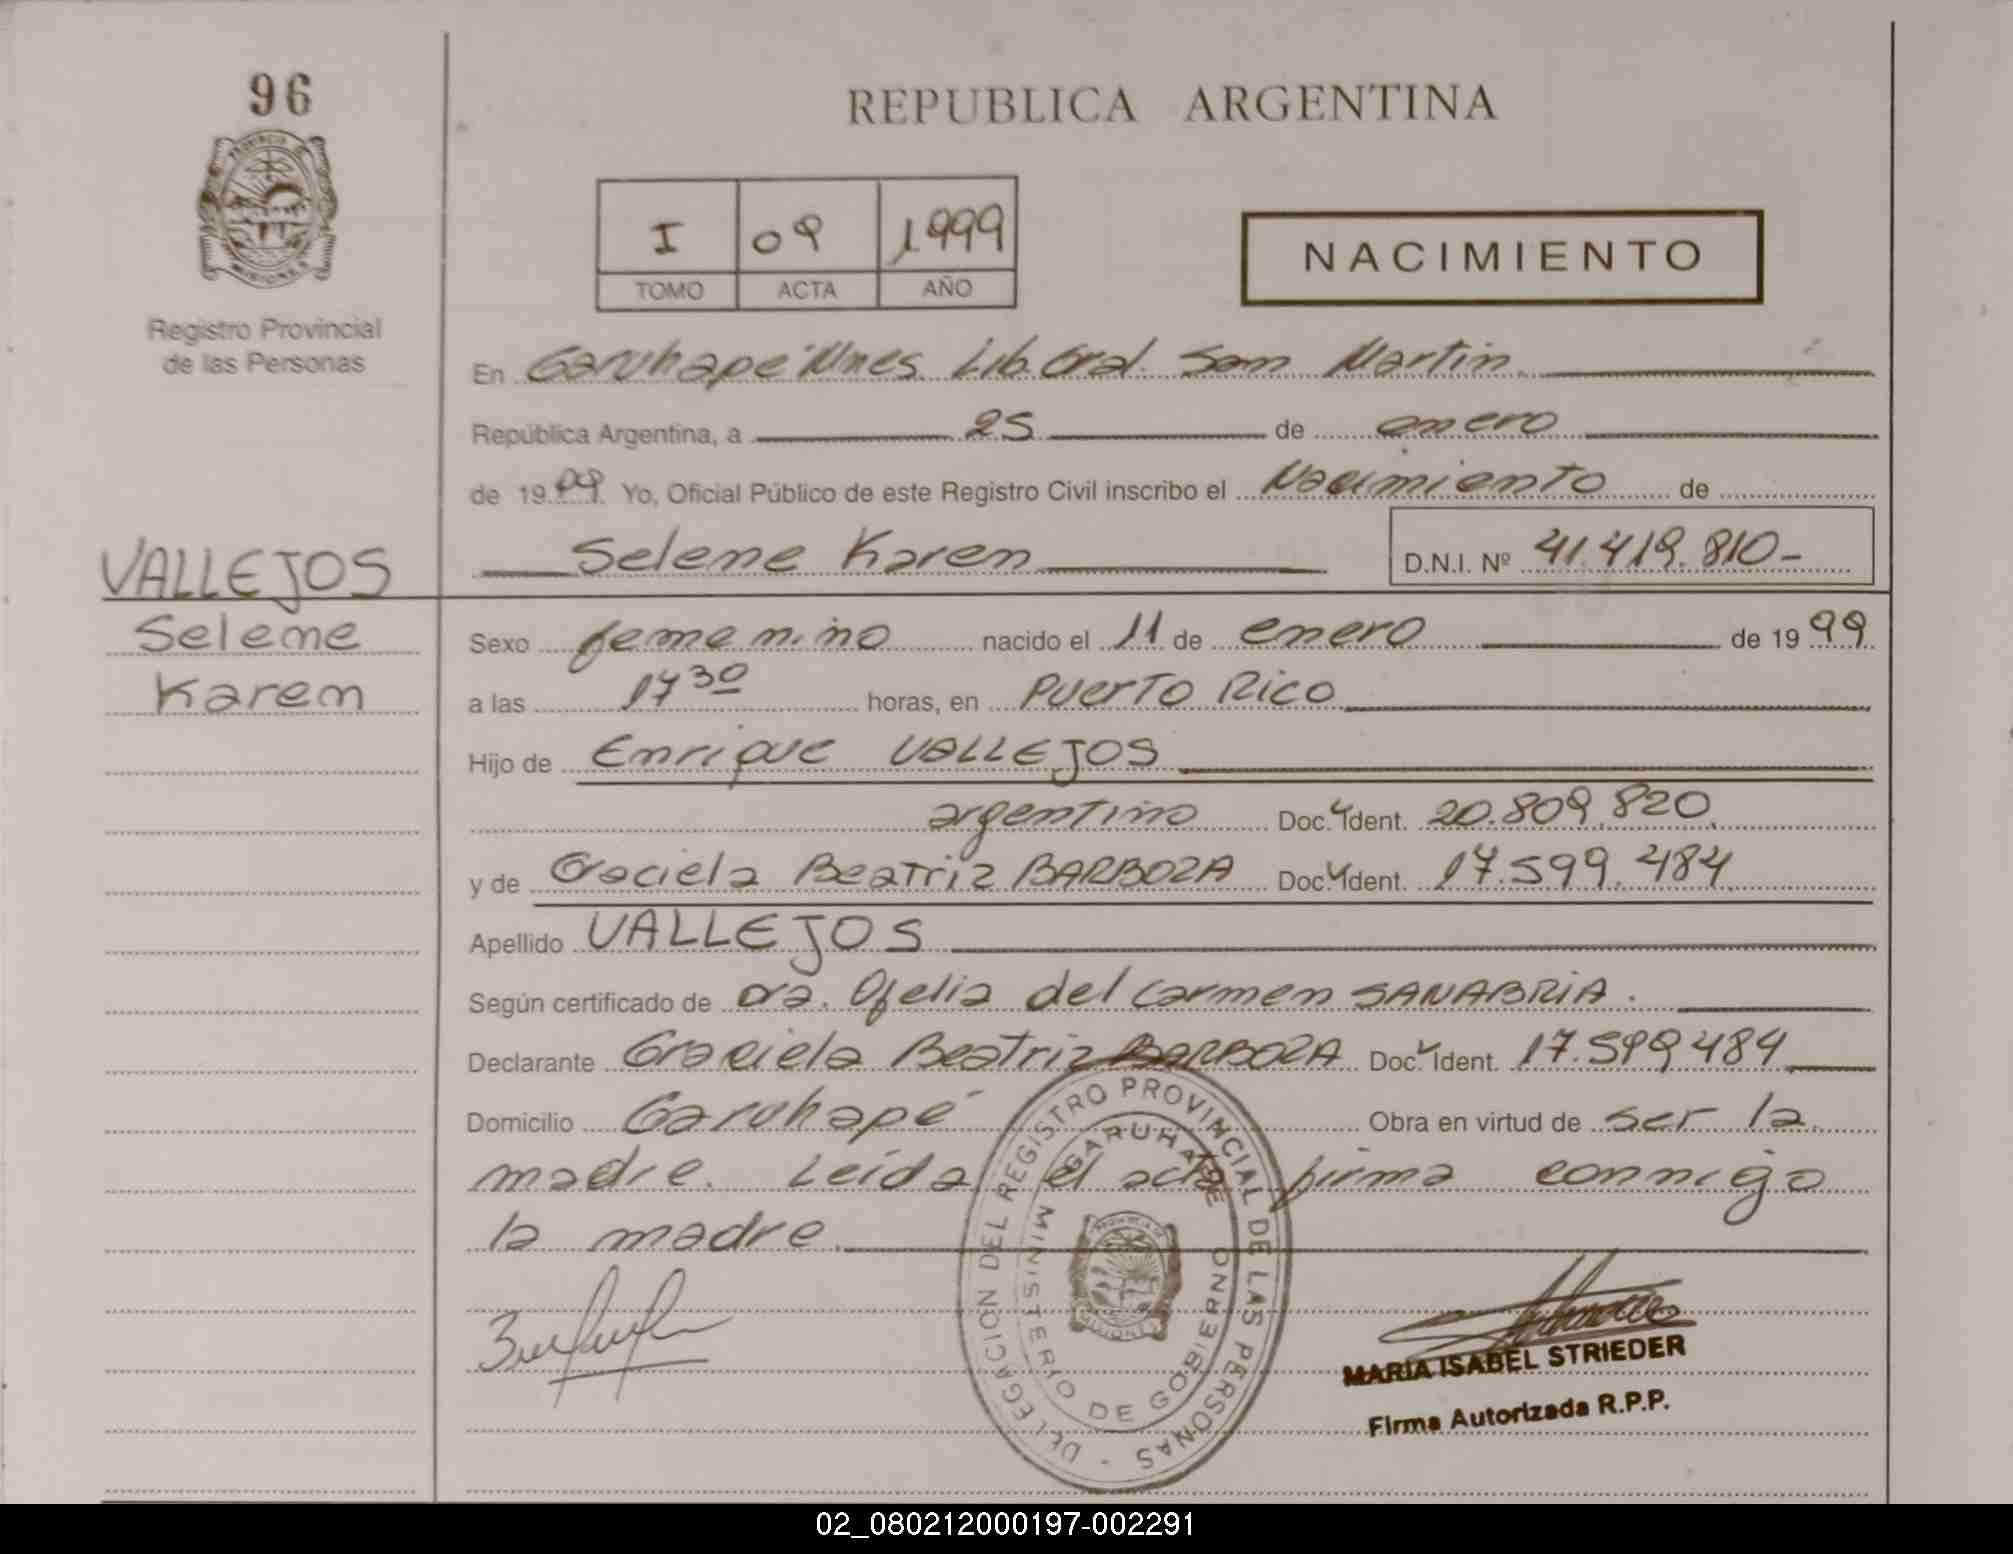 96
REPUBLICA ARGENTINA
PROVINCIA DE
MISIONES
I 09 1999
TOMO ACTA AÑO
NACIMIENTO
Registro Provincial
de las Personas
En Garuhapé Mnes Lib. Gral. San Martin
República Argentina, a 25 de enero
de 1999 Yo, Oficial Público de este Registro Civil inscribo el Nacimiento de
Seleme Karen D.N.I. Nº 41.419.810-
VALLEJOS
Seleme
Karem
Sexo femenino nacido el 11 de enero de 1999
a las 17 30 horas, en Puerto Rico
Hijo de Enrique VALLEJOS
argentino Doc. Ident. 20.809.820.
y de Graciela Beatriz BARBOZA Doc. Ident. 17.599.484
Apellido VALLEJOS
Según certificado de Dra. Ofelia del Carmen SANABRIA.
Declarante Graciela Beatriz BARBOZA Doc. Ident. 17.599.484
Domicilio Garuhapé Obra en virtud de ser la
madre. Leída el acta firma conmigo
la madre.
DELEGACION DEL REGISTRO PROVINCIAL DE LAS PERSONAS -
GARUHAPE
MINISTERIO DE GOBIERNO
MISIONES
MARIA ISABEL STRIEDER
Firma Autorizada R.P.P.
02_080212000197-002291